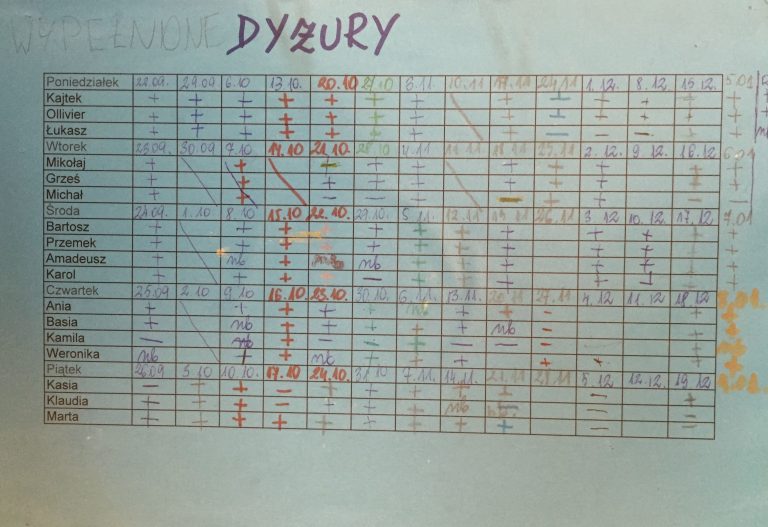 WYPEŁNIONE DYŻURY
Poniedziałek 22.09. 29.09 6.10 13.10. 20.10 27.10 3.11. 10.11 17.11 24.11 1.12. 8.12. 15.12. 5.01
Kajtek + + + + + + + + + + +
Ollivier + + + + + + + + + +
Łukasz + + + + + + + + - + - +
Wtorek 23.09. 30.09 7.10 14.10 21.10 28.10 4.11 18.11 25.11 2.12. 9.12. 16.12.
Mikołaj + + + + +
Grześ + + - + + +
Michał + + - - - +
Środa 24.09. 1.10 8.10 15.10 22.10. 29.10. 5.11. 12.11 19.11 26.11 3.12 10.12. 17.12. 7.01
Bartosz + + + + + + + + +
Przemek + + + + + + + + +
Amadeusz + nb + nb + + + +
Karol + + + - + + + +
Czwartek 25.09 2.10 9.10 16.10. 23.10. 30.10. 6.11. 13.11. 20.11 27.11 4.12. 11.12. 18.12 8.01.
Ania + + + + + + + -
Basia + nb + + + + + nb -
Kamila - nb + - - + - - -
Weronika nb + + nb + + +
Piątek 26.09 3.10 10.10. 17.10 24.10. 31.10 7.11. 14.11. 21.11 28.11 5.12 12.12. 19.12 9.01.
Kasia - + + - + + + + + -
Klaudia - + + - - + + nb - +
Marta + + + + + + + + + - +